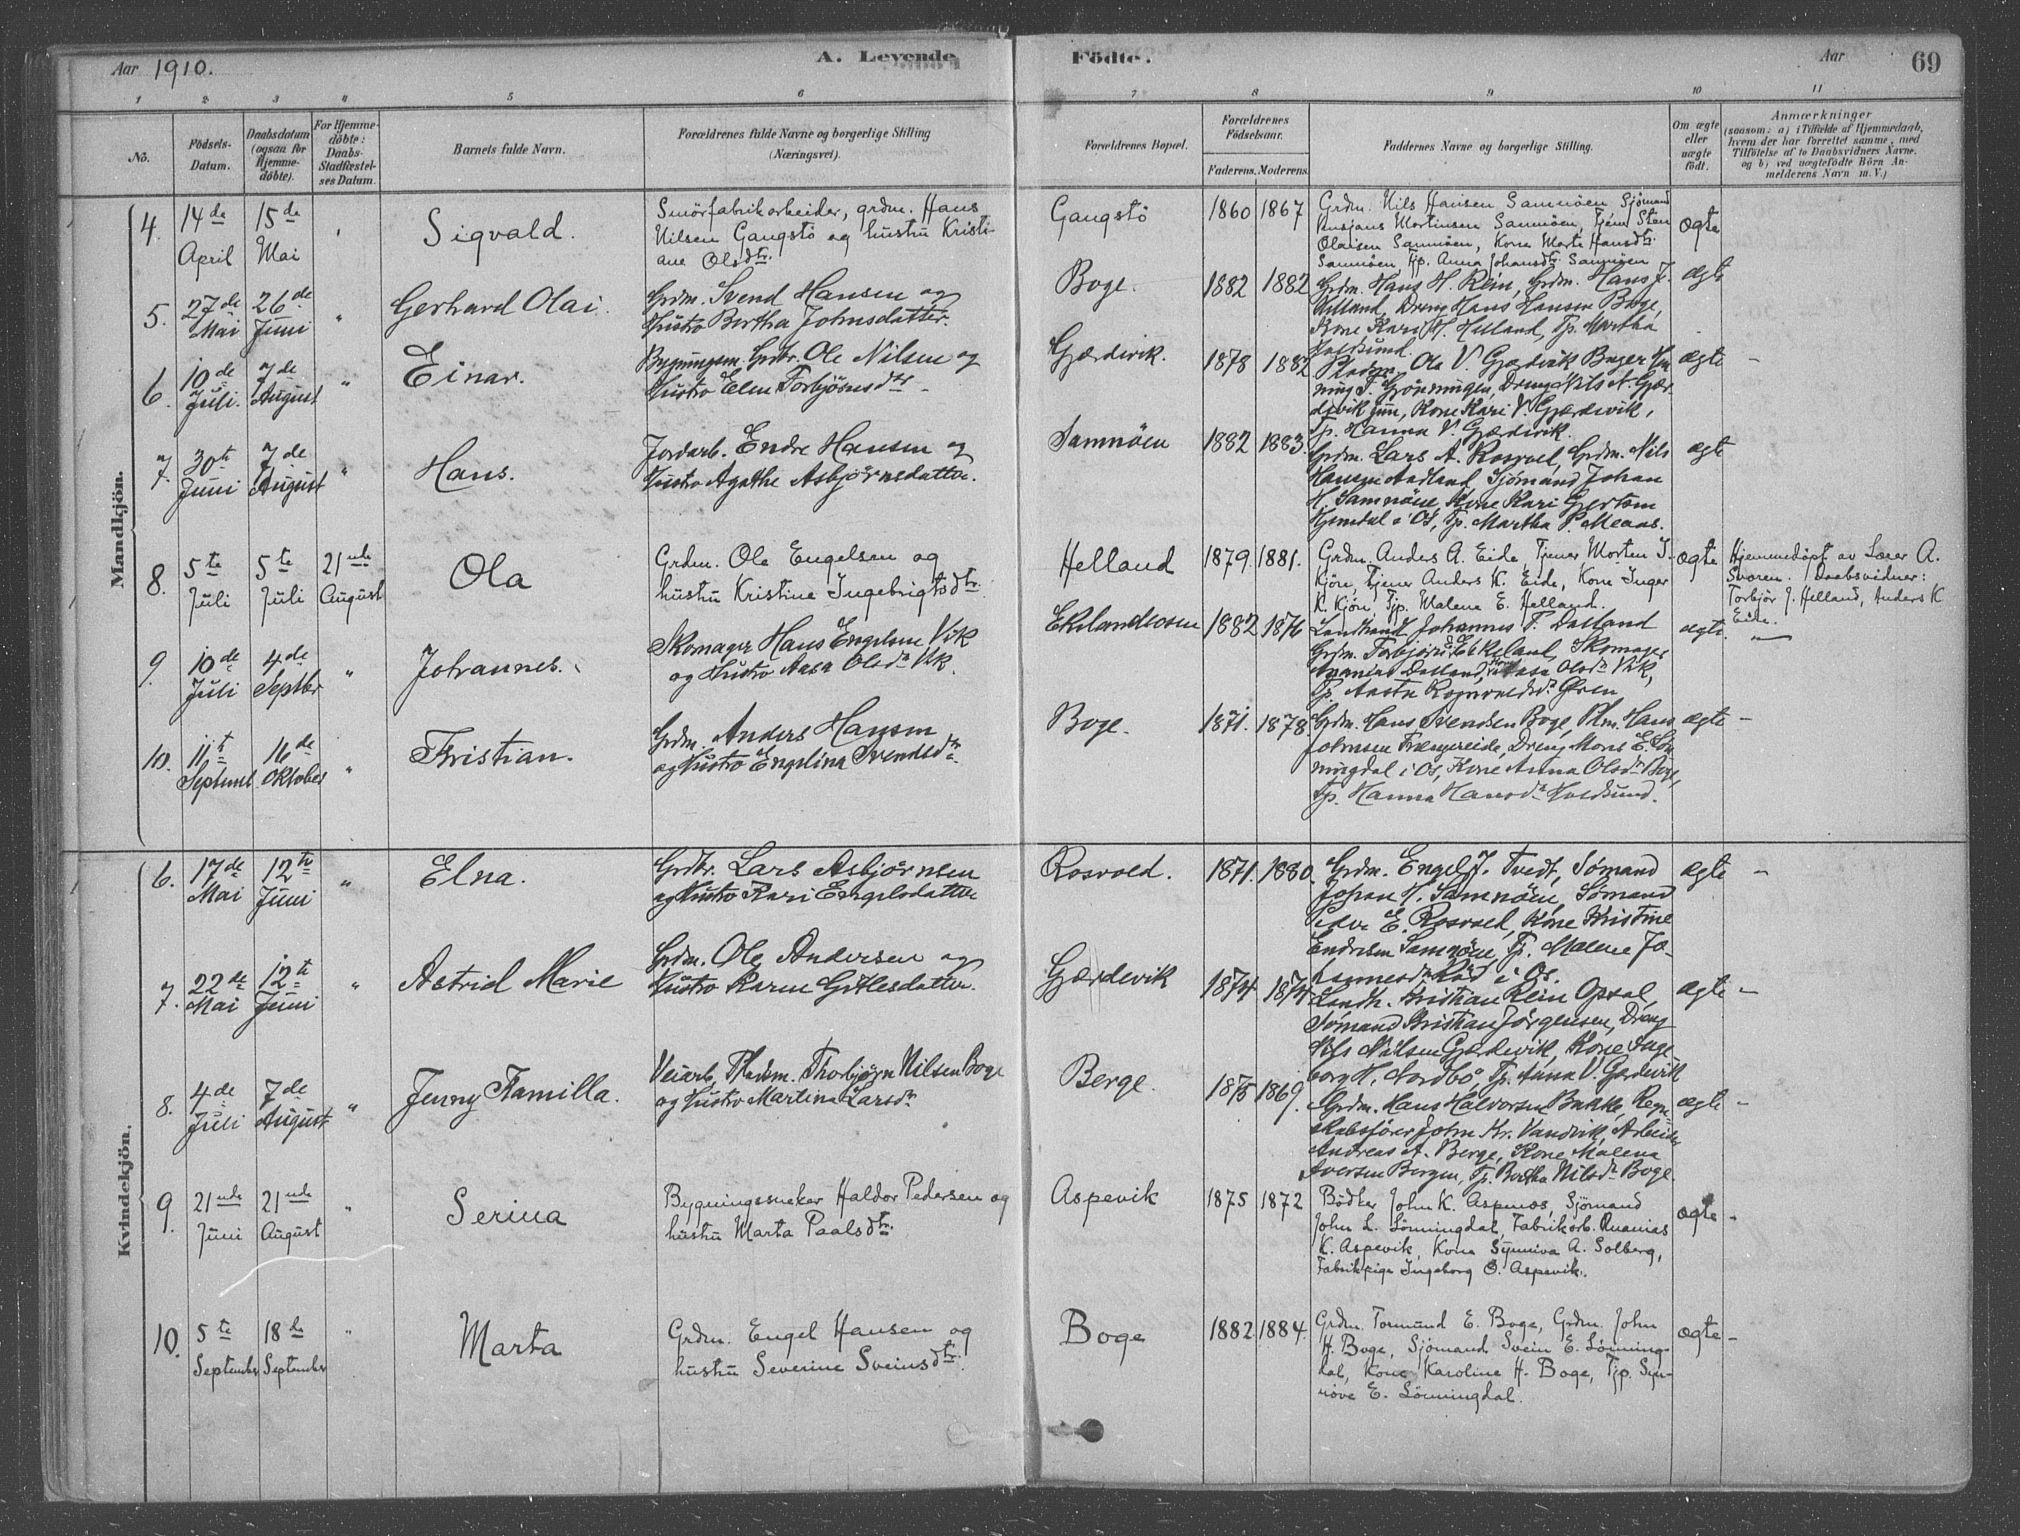 Aar 1910.
A. Levende
Födte.
Aar
69
1 2 3 4 5 6 7 8 9 10 11
No.
Födsels-
Datum.
Daabsdatum
(ogsaa for
Hjemme-
döbte).
For Hjemme-
döbte:
Daabs-
Stadfæstel-
ses Datum.
Barnets fulde Navn.
Forældrenes fulde Navne og borgerlige Stilling
(Næringsvei).
Forældrenes Bopæl.
Forældrenes
Födselsaar.
Faderens.
Moderens.
Faddernes Navne og borgerlige Stilling.
Om ægte
eller
uægte
födt.
Anmærkninger
(saasom: a) i Tilfælde af Hjemmedaab,
hvem der har forrettet samme, med
Tilföielse af to Daabsvidners Navne,
og b) ved uægtefödte Börn An-
melderens Navn m. V.)
Mandkjön.
4.
14de
April
15de
Mai
Sigvald.
Smörfabrikarbeider, grdm. Hans
Nilsen Gangstö og hustru Kristi-
ane Olsdtr.
Gangstö
1860
1867
Grdm. Nils Hansen Samnöen Sjömand
Mortinsen Samnöen, Tjener Sten
Olaisen Samnöen, Kone Marta Hansdtr.
Samnöen Tjp. Anna Johansdtr. Samnöen
ægte
5.
27de
Mai
26de
Juni
"
Gerhard Olai.
Grdm. Svend Hansen og
Hustro Bertha Johnsdatter.
Boge.
1882
1882
Grdm. Hans H. Rein, Grdm. Hans J.
Helland, Dreng Hans Hansen Boge,
Kone Kari H. Helland, Tp. Martha
Holdsund.
ægte
6.
10de
Juli.
7de
August
"
Einar.
Bygningsm. Grdbr. Ole Nilsen og
Hustro Elen Torbjörnsdtr
Gjærdevik.
1878
1882
Ole V. Gjærdevik Bager Hen-
ning T. Grönningen, Dreng Nils N. Gjær-
devik jun, Kone Kari V. Gjærdevik,
Tp. Hanna V. Gjærdevik.
ægte
7.
30te
Juni
7de
August
"
Hans.
Jordarb. Endre Hansen og
Hustro Agathe Asbjörnsdatter.
Samnöen
1882
1883.
Grdm. Lars A. Rosvold, Grdm. Nils
Hansen Aadland Sjömand Johan
H. Samnöen, Kone Kari Gjertsen
Hjemdal i Os, Tp. Martha P. Meaas.
ægte
8.
5te
Juli
5te
Juli
21nde
August
Ola
Grdm. Ole Engelsen og
hustru Kristine Ingebrigtsdtr.
Helland
1879.
1881.
Grdm. Anders A. Eide, Tjener Morten J.
Kjön, Tjener Anders K. Eide, Kone Inger
K. Kjön, Tjp. Malene E. Helland.
ægte
Hjemmedöpt av Lærer A.
Svoren. Daabsvidner:
Torbjör J. Helland, Anders K
Eide.
9.
10de
Juli
4de
Septbr
"
Johannes.
Skomager Hans Engelsen Vik
og Hustro Aasa Olsdtr Vik.
Ekelandsosen
1882
1876
Landhand. Johannes T. Dalland
Grdm. Torbjörn Ekeland, Skomager
Ananias Dalland, Kone Aasa Olsdtr Vik,
Tp. Aasta Ragnvaldsdtr Ören
ægte.
10.
11te
Septembr
16de
Oktober
"
Kristian.
Grdm. Anders Hansen
og Hustro Engelina Svendsdtr.
Boge.
1871.
1878.
Grdm. Hans Svendsen Boge, Plm. Hans
Johnsen Frængereide, Dreng Mons E. Søn-
ningdal i Os, Kone Anna Olsdtr Boge,
Tp. Hanna Hansdtr Holdsund.
ægte –
Kvindekjön.
6.
17de
Mai
12te
Juni
"
Elna.
Grdbr. Lars Asbjörnsen
og Hustro Kari Engelsdatter
Rosvold.
1871.
1880.
Grdm. Engel J. Tvedt, Sømand
Johan H. Samnöen, Sømand
Peder E. Rosvold, Kone Kristine
Endresen Samnöen, Tp. Malene Jo-
hannesdtr Röd i Os.
ægte –
7.
22de
Mai
12te
Juni
"
Astrid Marie
Grdm. Ole Andersen og
Hustro Karen Gitlesdatter.
Gjærdevik
1874
1874
Landh. Kristian Rein Opsal,
Sømand Kristian Jörgensen, Dreng
Nils Nilsen Gjærdevik, Kone Inge-
borg H. Nordbö, Tp. Anna V. Gjærdevik
ægte –
8.
4de
Juli
7de
August
"
Jenny Kamilla.
Veiarb. Pladsm. Thorbjørn Nilsen Boge
og Hustro Martina Larsdtr
Berge.
1875
1869.
Grdm. Hans Halvorsen Bakke, Regn-
skabsfører John Kr. Vandvik, Arbeider
Andreas A. Berge, Kone Malena
Iversen Bergen, Tp. Bertha Nilsdtr Boge.
ægte –
9.
21nde
Juni
21nde
August
"
Serina
Bygningssneker Haldor Pedersen og
hustru Marta Paalsdtr.
Aspevik
1875
1872
Bödker John K. Aspenes, Sjömand
John L. Lönningdal, Fabrikarb. Ananias
K. Aspevik, Kone Synniva A. Solberg,
Fabrikpige Ingeborg O. Aspevik.
ægte –
10.
5te
September
18de
September
"
Marta
Grdm. Engel Hansen og
hustru Severine Sveinsdtr.
Boge
1882.
1884.
Grdm. Tormund E. Boge, Grdm. John
H. Boge, Sjömand Svein E. Lönning-
dal, Kone Karoline H. Boge, Tjp. Syn-
növe E. Lönningdal.
ægte –